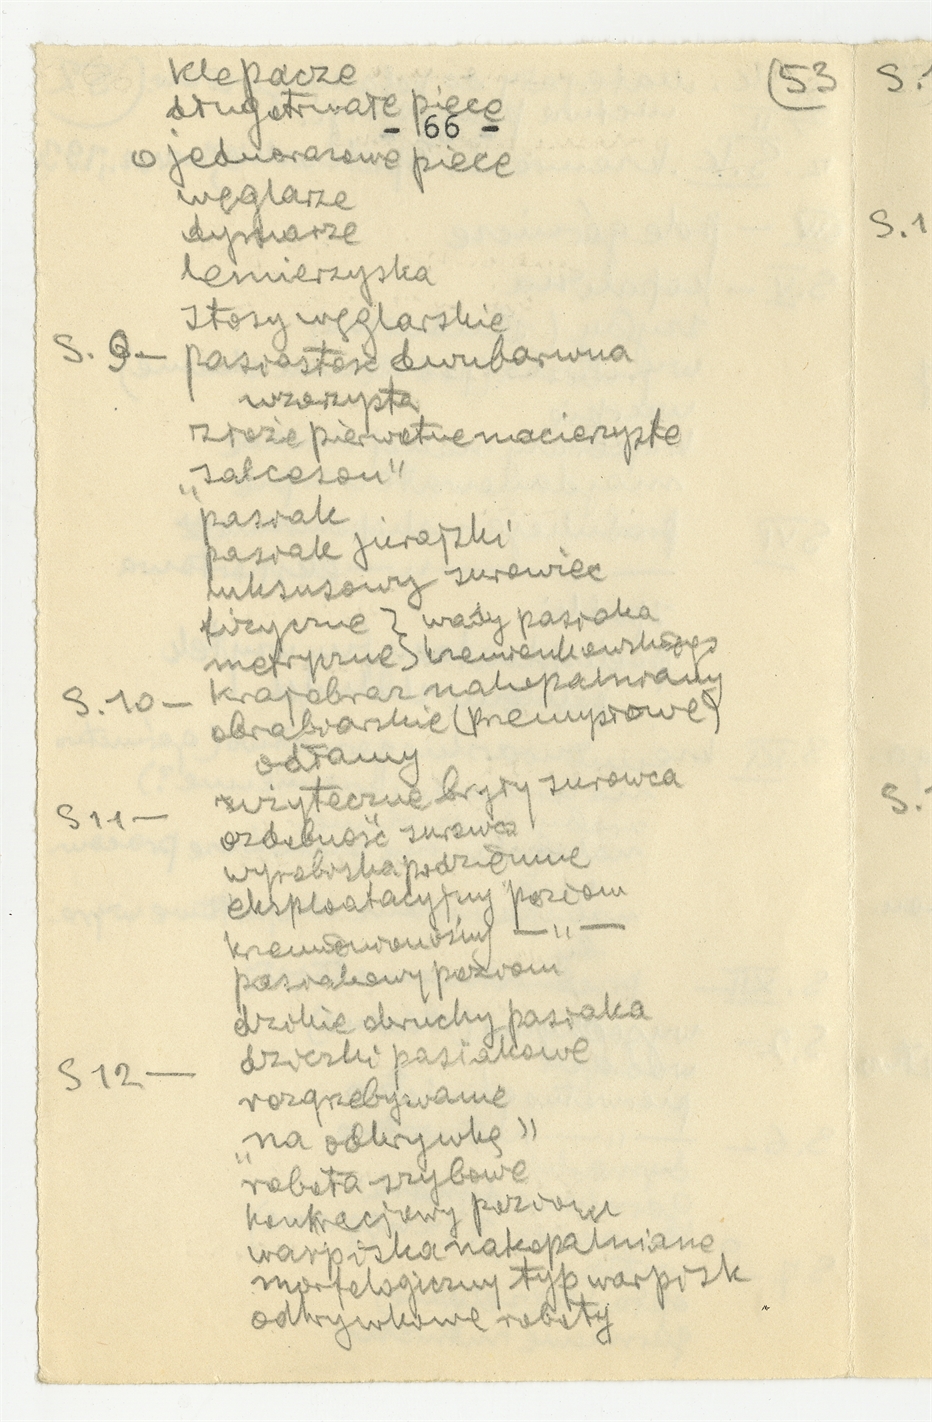 klepacze (53 S.1
długotrwałe piece
- 66 -
o jednorazowe piece
węglarze
dymarze S.1
lemierzyska
stosy węglarskie
S. 9 — pasiastość dwubarwna
wzorzysta
złoże pierwotne macierzyste
„salceson"
pasiak
pasiak jurajski
luksusowy surowiec
fizyczne } wady pasiaka
metryczne } krzemionkowskiego
S.10 — krajobraz nakopalniany
obrabiarskie (przemysłowe)
odłamy
użyteczne bryły surowca S.1
S 11 — ozdobność surowca
wyrobiska podziemne
eksploatacyjny poziom
krzemionośny — " —
pasiakowy poziom
dzikie obruchy pasiaka
S 12 — dziczki pasiakowe
rozgrzebywanie
„na odkrywkę"
robota szybowa
konkrecjowy poziom
warpiska nakopalniane
morfologiczny typ warpisk
odkrywkowe roboty